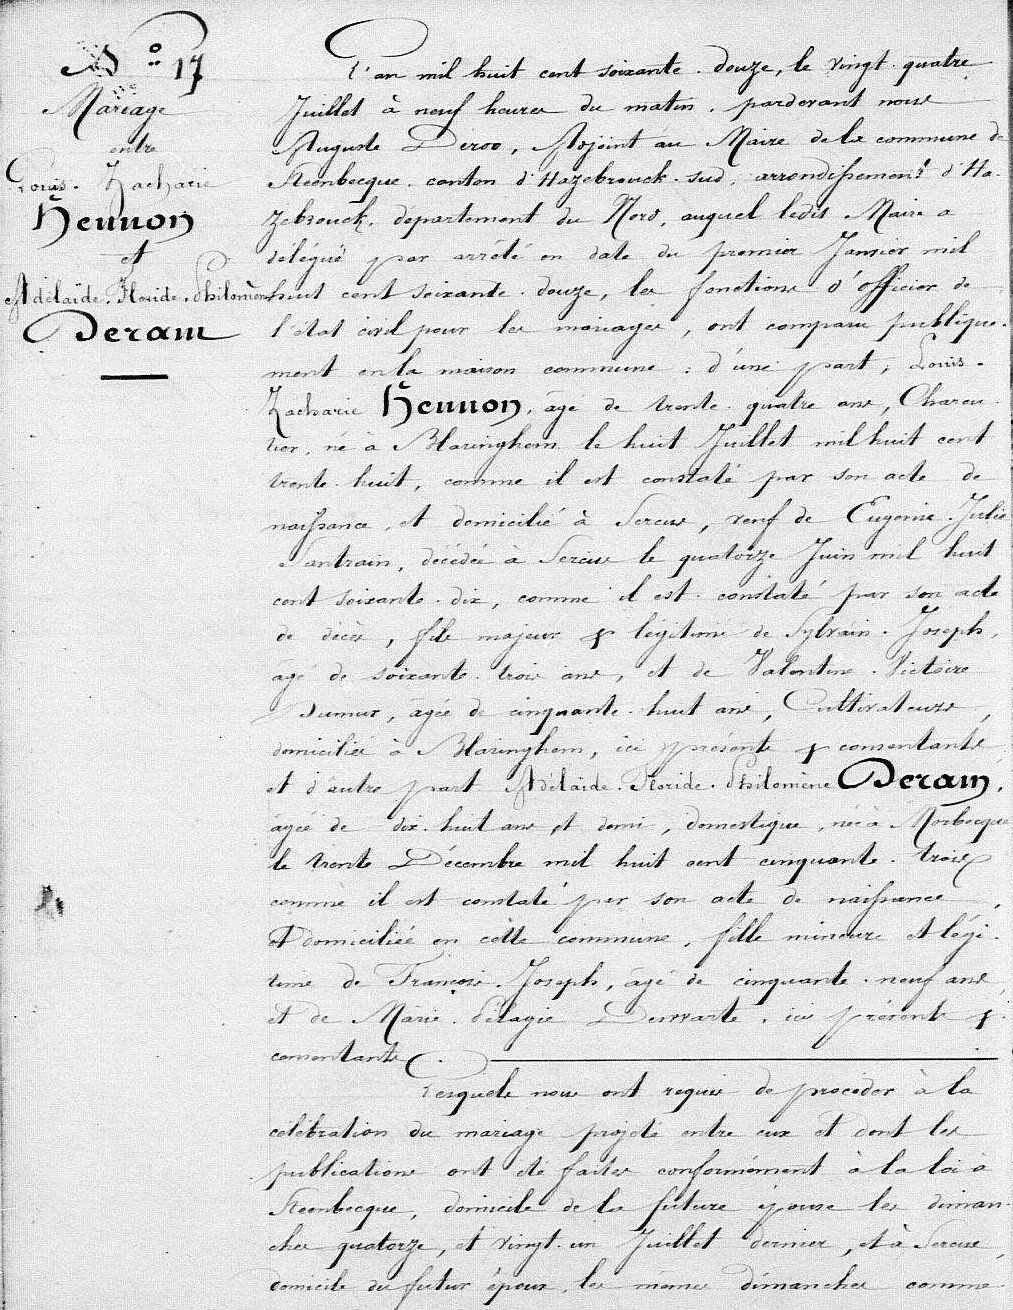 N° 17
Mariage
entre
Louis. Zacharie
Hennon
et
Adélaïde. Floride. Philomène
Deram
L'an mil huit cent soixante. douze, le vingt. quatre
Juillet à neuf heures du matin, pardevant nous
Auguste Deroo, Adjoint au Maire de la commune de
Steenbecque, canton d'Hazebrouck. sud, arrondissement d'Ha-
zebrouck, département du Nord, auquel ledit Maire a
délégué par arrêté en date du premier Janvier mil
huit cent soixante. douze, les fonctions d'officier de
l'état civil pour les mariages, ont comparu publique-
ment en la maison commune : d'une part, Louis.
Zacharie Hennon, âgé de trente. quatre ans, Charcu-
tier, né à Blaringhem le huit Juillet mil huit cent
trente. huit, comme il est constaté par son acte de
naissance, et domicilié à Sercus, veuf de Eugénie. Julie
Santrain, décédée à Sercus le quatorze Juin mil huit
cent soixante. dix, comme il est constaté par son acte
de décès, fils majeur & légitime de Sylvain. Joseph,
âgé de soixante. trois ans, et de Valentine. Victoire
Dumur, âgée de cinquante. huit ans, Cultivateurs,
domiciliés à Blaringhem, ici présents & consentants
et d'autre part Adélaïde. Floride. Philomène Deram,
âgée de dix. huit ans et demi, domestique, née à Morbecque
le trente Décembre mil huit cent cinquante. trois
comme il est constaté par son acte de naissance,
et domiciliée en cette commune, fille mineure et légi-
time de François. Joseph, âgé de cinquante. neuf ans,
et de Marie. Pélagie Dewarte, ici présents &
consentants.
Lesquels nous ont requis de procéder à la
célébration du mariage projeté entre eux et dont les
publications ont été faites conformément à la loi à
Steenbecque, domicile de la future épouse les diman-
ches quatorze, et vingt. un Juillet dernier, et à Sercus,
domicile du futur époux, les mêmes dimanches comme